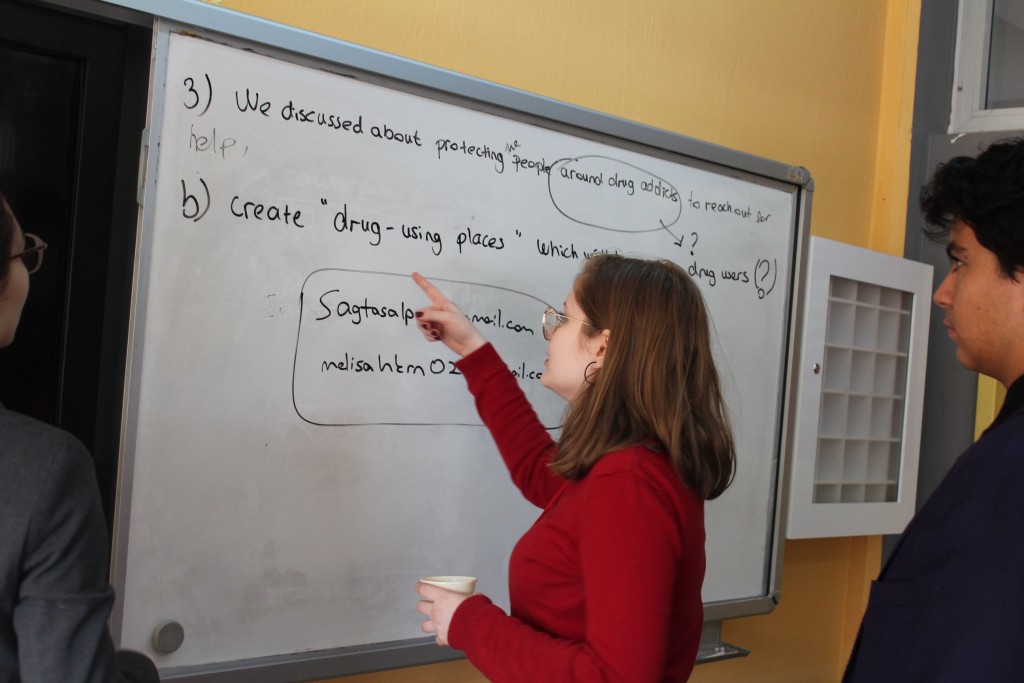 3) We discussed about protecting the people around drug addicts to reach out for
help,
?
b) create "drug-using places" which will drug users (?)
Sagtasalp mail.com
melisahkm02 ail.co